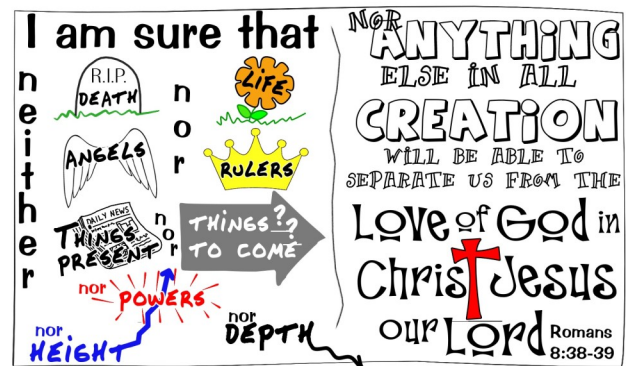 I am sure that
neither
R.I.P.
DEATH
nor
LIFE
ANGELS
RULERS
DAILY NEWS
THINGS
PRESENT
nor
THINGS??
TO COME
nor POWERS
nor
HEIGHT
nor
DEPTH
NOR ANYTHING
ELSE IN ALL
CREATION
WILL BE ABLE TO
SEPARATE US FROM THE
Love of God in
Christ Jesus
our Lord
Romans
8:38-39